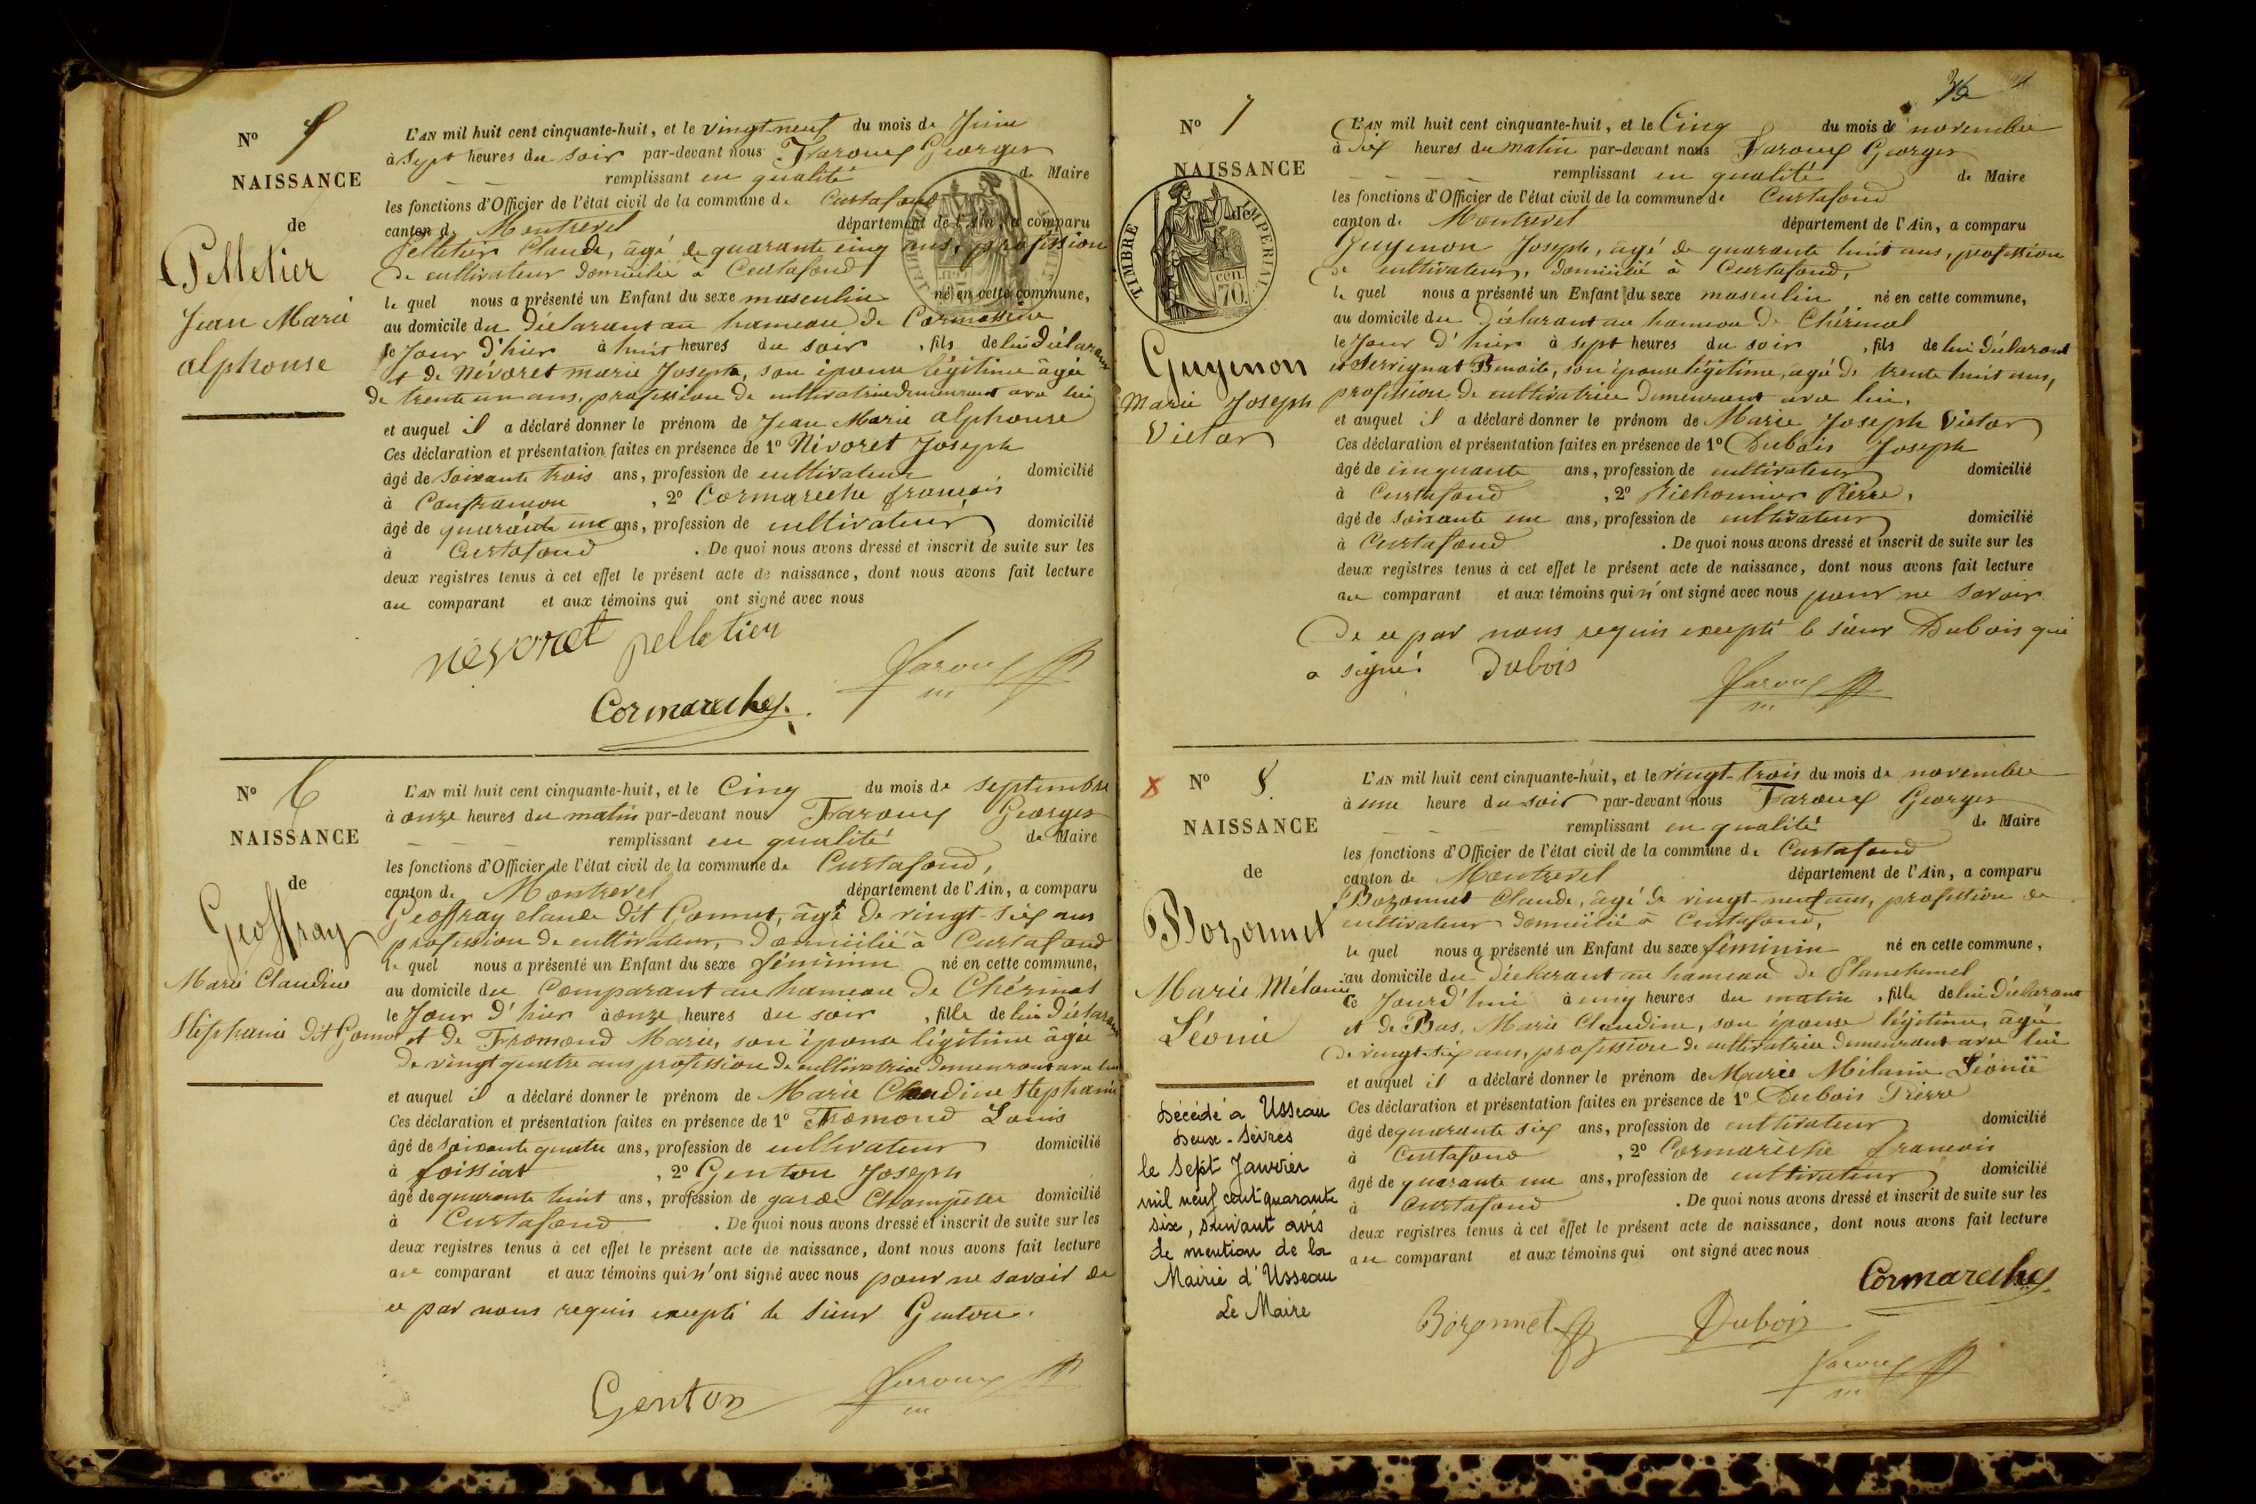 N° 5
NAISSANCE
de
Pelletier
Jean Marie
alphonse
L'AN mil huit cent cinquante-huit, et le vingt neuf du mois de Juin
à sept heures du soir par-devant nous Georges
remplissant en qualité de Maire
les fonctions d'Officier de l'état civil de la commune de Curtafond
canton de Montrevel département de l'Ain, a comparu
Pelletier Claude, âgé de quarante cinq ans, profession
de cultivateur domicilié à Curtafond
le quel nous a présenté un Enfant du sexe masculin né en cette commune,
au domicile du Déclarant au hameau de
le Jour d'hier à huit heures du soir, fils de lui Déclarant
et de Névoret marie Josepte, son épouse légitime âgée
de trente un ans, profession de cultivatrice demeurant avec lui
et auquel il a déclaré donner le prénom de Jean Marie alphonse
Ces déclaration et présentation faites en présence de 1° Névoret Joseph
âgé de soixante trois ans, profession de cultivateur domicilié
à Confrançon, 2° Cormareche françois
âgé de quarante un ans, profession de cultivateur domicilié
à Curtafond. De quoi nous avons dressé et inscrit de suite sur les
deux registres tenus à cet effet le présent acte de naissance, dont nous avons fait lecture
au comparant et aux témoins qui ont signé avec nous
nevoret pelletier
Cormareche
N° 6
NAISSANCE
de
Geoffray
Marie Claudine
Stéphanie dit Gonnet
L'AN mil huit cent cinquante-huit, et le Cinq du mois de septembre
à onze heures du matin par-devant nous Georges
remplissant en qualité de Maire
les fonctions d'Officier de l'état civil de la commune de Curtafond,
canton de Montrevel département de l'Ain, a comparu
Geoffray claude dit Gonnet, âgé de vingt-six ans
profession de cultivateur, domicilié à Curtafond
le quel nous a présenté un Enfant du sexe féminin né en cette commune,
au domicile du Comparant au hameau de Chérinal
le Jour d'hier à onze heures du soir, fille de lui Déclarant
et de Fromond Marie, son épouse légitime âgée
de vingt quatre ans profession de cultivatrice demeurant avec lui
et auquel il a déclaré donner le prénom de Marie Claudine Stephanie
Ces déclaration et présentation faites en présence de 1° Fromond Louis
âgé de soixante quatre ans, profession de cultivateur domicilié
à foissiat, 2° Genton Joseph
âgé de quarante huit ans, profession de garde Champêtre domicilié
à Curtafond. De quoi nous avons dressé et inscrit de suite sur les
deux registres tenus à cet effet le présent acte de naissance, dont nous avons fait lecture
au comparant et aux témoins qui n'ont signé avec nous pour ne savoir de
ce par nous requis excepté le sieur Genton.
Genton
N° 7
NAISSANCE
de
TIMBRE IMPERIAL
CEN. 70.
Guyenon
Marie Joseph
Victor
L'AN mil huit cent cinquante-huit, et le Cinq du mois de novembre
à six heures du matin par-devant nous Georges
remplissant en qualité de Maire
les fonctions d'Officier de l'état civil de la commune de Curtafond
canton de Montrevel département de l'Ain, a comparu
Guyenon Joseph, âgé de quarante huit ans, profession
de cultivateur, domicilié à Curtafond,
le quel nous a présenté un Enfant du sexe masculin né en cette commune,
au domicile du Déclarant au hameau de Chérinal
le Jour d'hier à sept heures du soir, fils de lui Déclarant
et Benoite, son épouse légitime, agée de trente huit ans,
profession de cultivatrice demeurant avec lui,
et auquel il a déclaré donner le prénom de Marie Joseph Victor
Ces déclaration et présentation faites en présence de 1° Dubois Joseph
âgé de cinquante ans, profession de cultivateur domicilié
à Curtafond, 2° Pierre,
âgé de soixante un ans, profession de cultivateur domicilié
à Curtafond. De quoi nous avons dressé et inscrit de suite sur les
deux registres tenus à cet effet le présent acte de naissance, dont nous avons fait lecture
au comparant et aux témoins qui n'ont signé avec nous pour ne savoir
de ce par nous requis excepté le sieur Dubois qui
a signé. Dubois
N° 8
NAISSANCE
de
Bozonnet
Marie Mélanie
Léonie
Décédé à Usseau
Deux-Sèvres
le Sept Janvier
mil neuf cent quarante
six, suivant avis
de mention de la
Mairie d'Usseau
Le Maire
L'AN mil huit cent cinquante-huit, et le vingt-trois du mois de novembre
à une heure du soir par-devant nous Georges
remplissant en qualité de Maire
les fonctions d'Officier de l'état civil de la commune de Curtafond
canton de Montrevel département de l'Ain, a comparu
Bozonnet Claude, âgé de vingt-neuf ans, profession de
cultivateur domicilié à Curtafond,
le quel nous a présenté un Enfant du sexe féminin né en cette commune,
au domicile du Déclarant au hameau de
ce Jourd'hui à cinq heures du matin, fille de lui Déclarant
et de Bas, Marie Claudine, son épouse légitime, âgée
de vingt-six ans, profession de cultivatrice demeurant avec lui
et auquel il a déclaré donner le prénom de Marie Mélanie Léonie
Ces déclaration et présentation faites en présence de 1° Dubois Pierre
âgé de quarante six ans, profession de cultivateur domicilié
à Curtafond, 2° Cormarèche francois
âgé de quarante un ans, profession de cultivateur domicilié
à Curtafond. De quoi nous avons dressé et inscrit de suite sur les
deux registres tenus à cet effet le présent acte de naissance, dont nous avons fait lecture
au comparant et aux témoins qui ont signé avec nous
Cormareche
Bozonnet Dubois